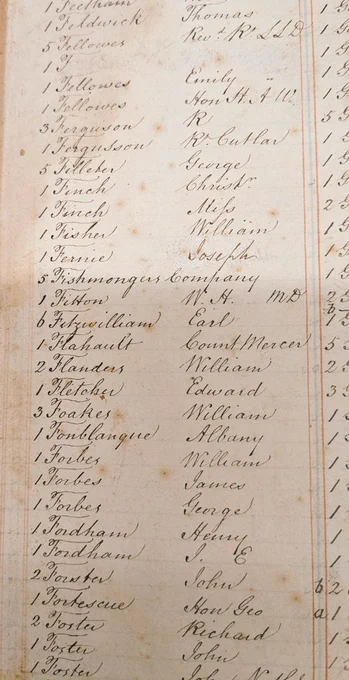 1 Feetham
1 Feldwick Thomas
5 Fellowes Revd Rt LLD
1 F
1 Fellowes Emily "
1 Fellowes Hon H. A. W.
3 Ferguson R
1 Fergusson Rt Cutlar
5 Filleter George
1 Finch Christr
1 Finch Miss
1 Fisher William
1 Fernie Joseph
5 Fishmongers Company
1 Fitton W. H. MD
6 Fitzwilliam Earl
1 Flahault Count Mercer
2 Flanders William
1 Fletcher Edward
3 Foakes William
1 Fonblanque Albany
1 Forbes William
1 Forbes James
1 Forbes George
1 Fordham Henry
1 Fordham J. E
2 Forster John
1 Fortescue Hon Geo
2 Foster Richard
1 Foster John
1 Foster John